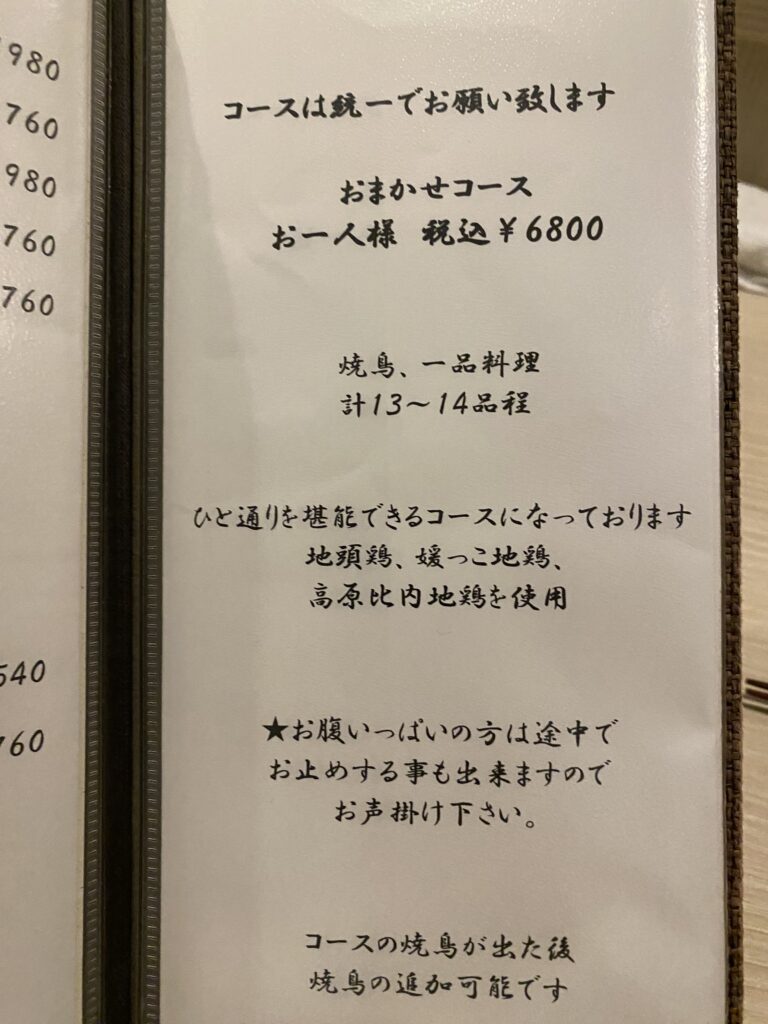 980
760
980
760
760
540
760
コースは統一でお願い致します
おまかせコース
お一人様 税込¥6800
焼鳥、一品料理
計13～14品程
ひと通りを堪能できるコースになっております
地頭鶏、媛っこ地鶏、
高原比内地鶏を使用
★お腹いっぱいの方は途中で
お止めする事も出来ますので
お声掛け下さい。
コースの焼鳥が出た後
焼鳥の追加可能です